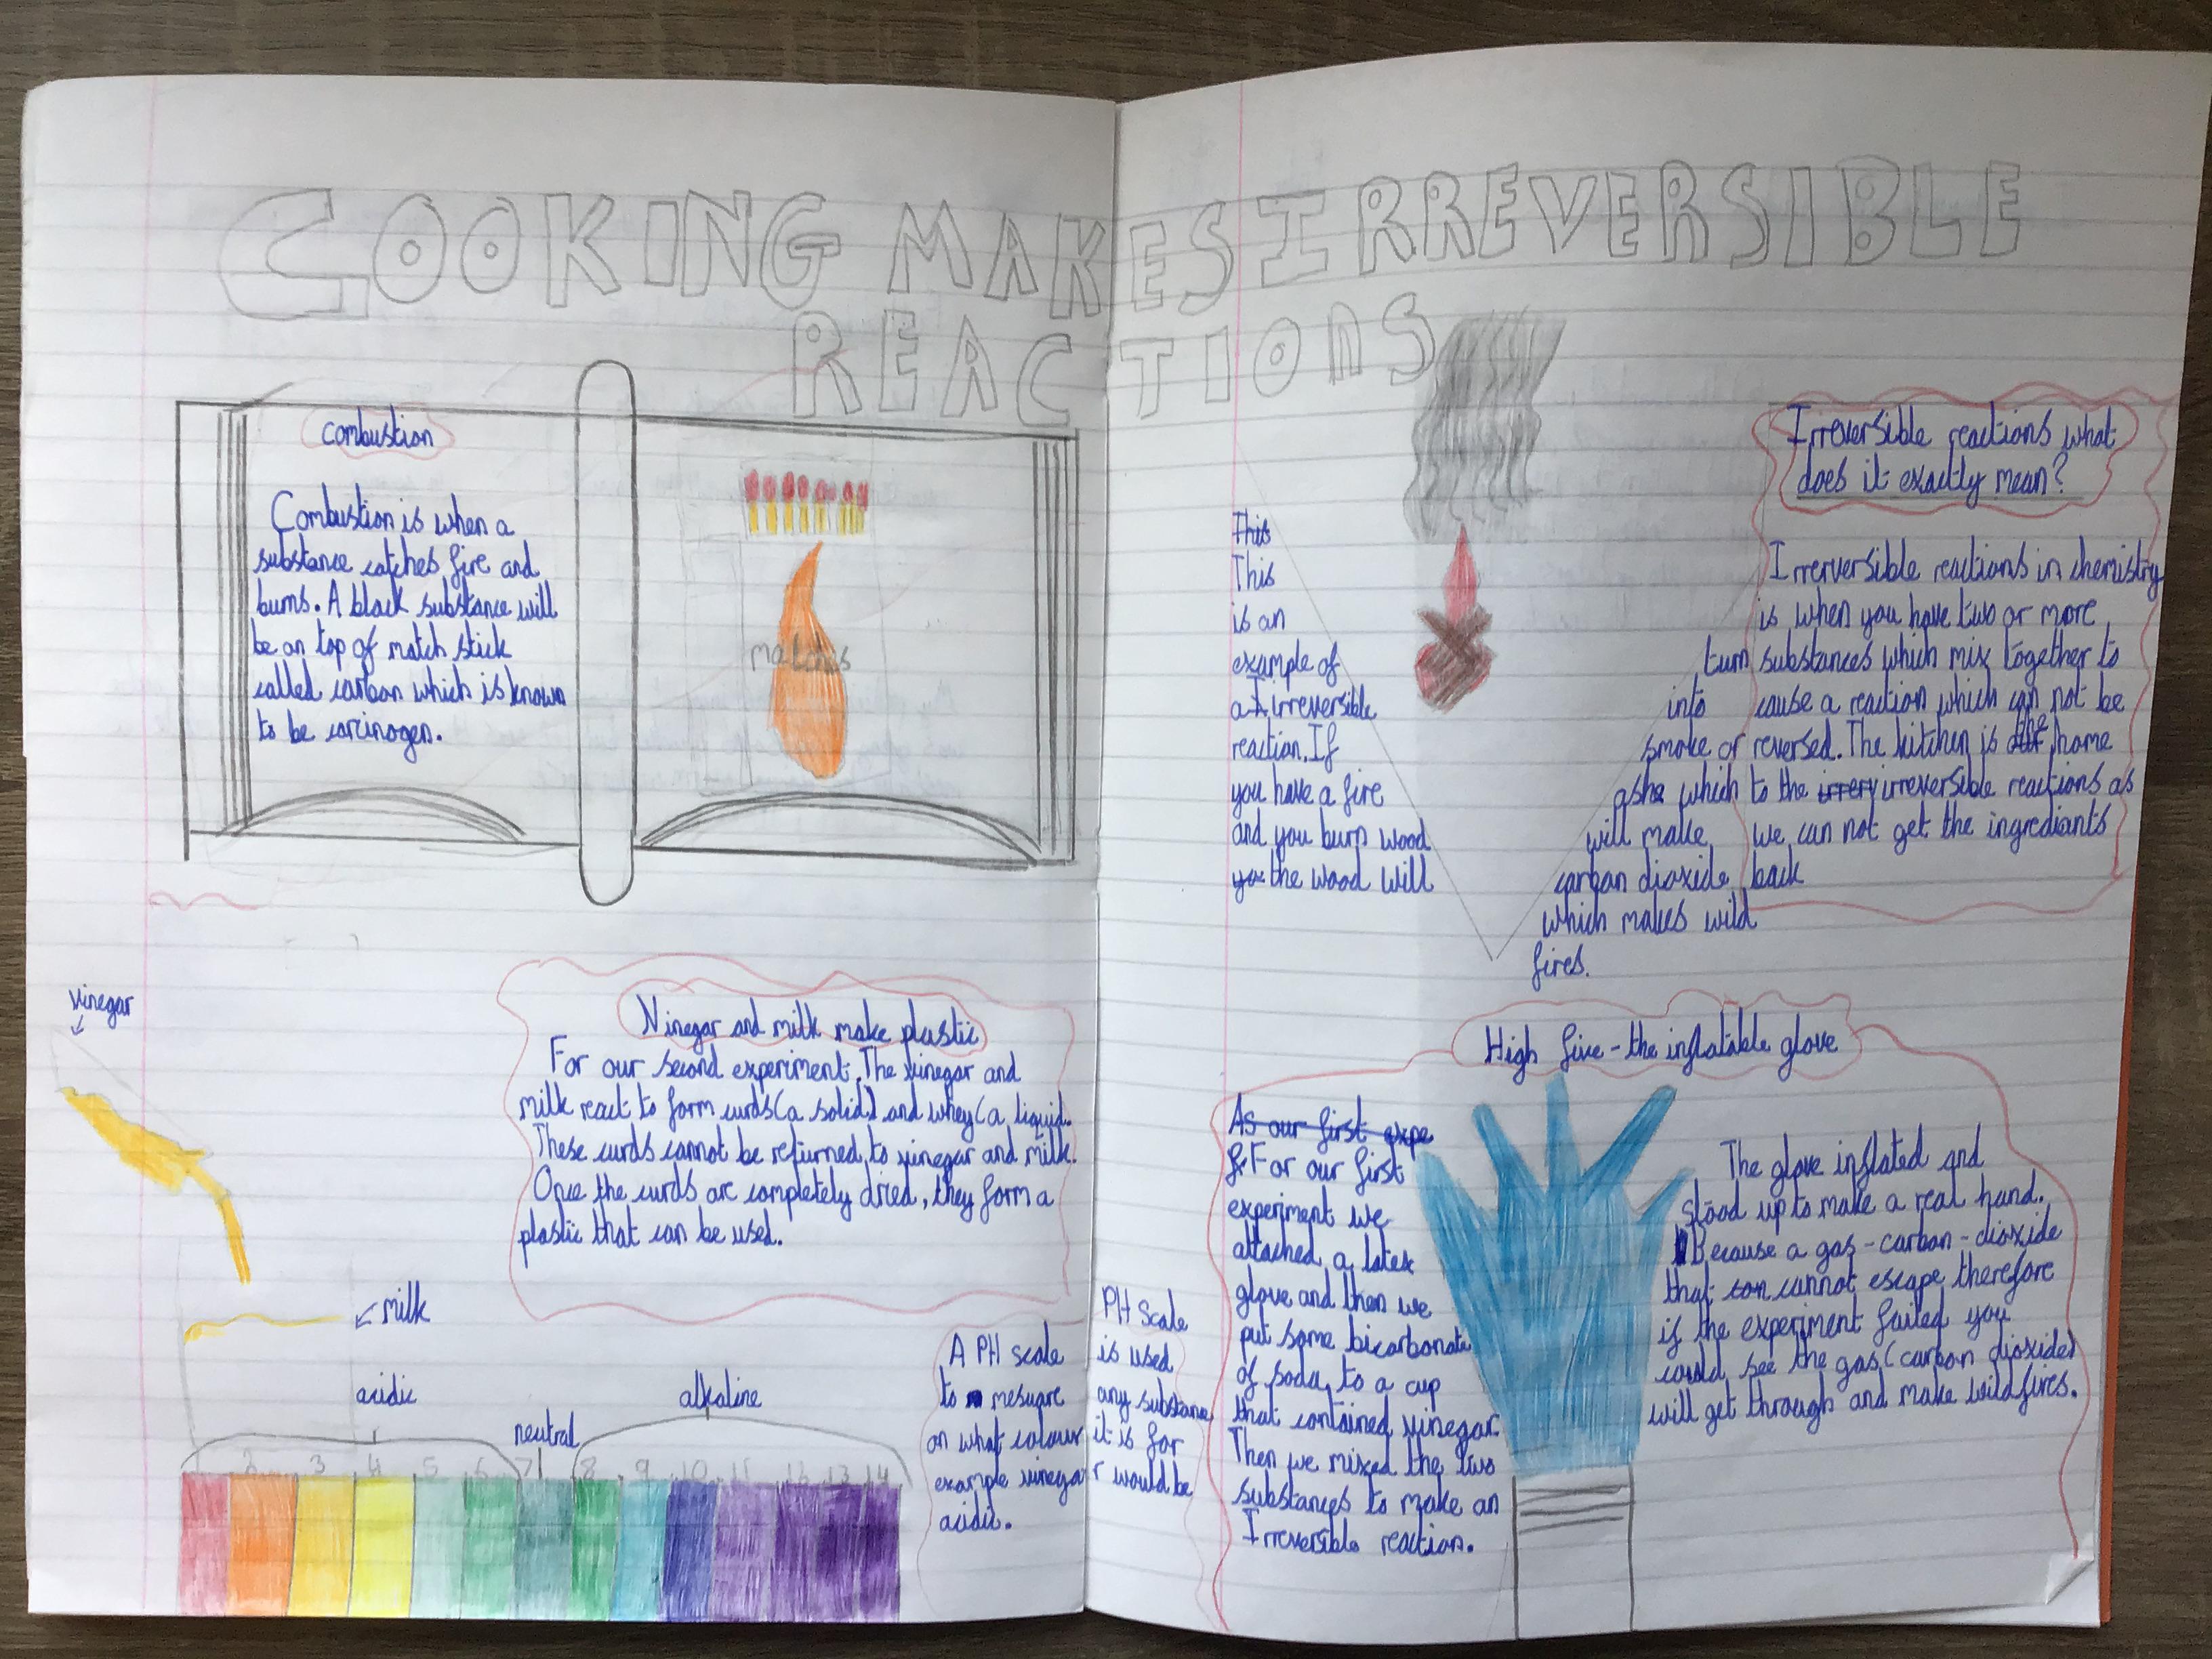 COOKING MAKES IRREVERSIBLE
REACTIONS
combustion
Combustion is when a
substance catches fire and
burns. A black substance will
be on top of match stick
called carbon which is known
to be carcinogen.
matches
This
This
is an
example of
a I irreversible
reaction. If
you have a fire
and you burn wood
you the wood will
turn
into
smoke or
ashe which
will make
carbon dioxide
which makes wild
fires.
Irreversible reactions what
does it exactly mean?
Irrerversible reactions in chemistry
is when you have two or more
substances which mix together to
cause a reaction which can not be
reversed. The kitchen is the home
to the irrery irreversible reactions as
we can not get the ingrediants
back
vinegar
milk
Vinegar and milk make plastic
For our second experiment, The vinegar and
milk react to form curds (a solid) and whey (a liquid.
These curds cannot be returned to vinegar and milk.
Once the curds are completely dried, they form a
plastic that can be used.
acidic
neutral
alkaline
1 2 3 4 5 6 7 8 9 10 11 12 13 14
A PH scale PH scale
to mesuare is used
any substance
on what colour it is for
example vinegar r would be
acidic.
High five - the inflatable glove
As our first expe
For our first
experiment we
attached a latex
glove and then we
put some bicarbonate
of soda, to a cup
that contained vinegar.
Then we mixed the two
substances to make an
Irreversible reaction.
The glove inflated and
stood up to make a real hand.
Because a gas - carbon - dioxide
that can cannot escape therefore
if the experiment failed you
could see the gas (carbon dioxide)
will get through and make wildfires.